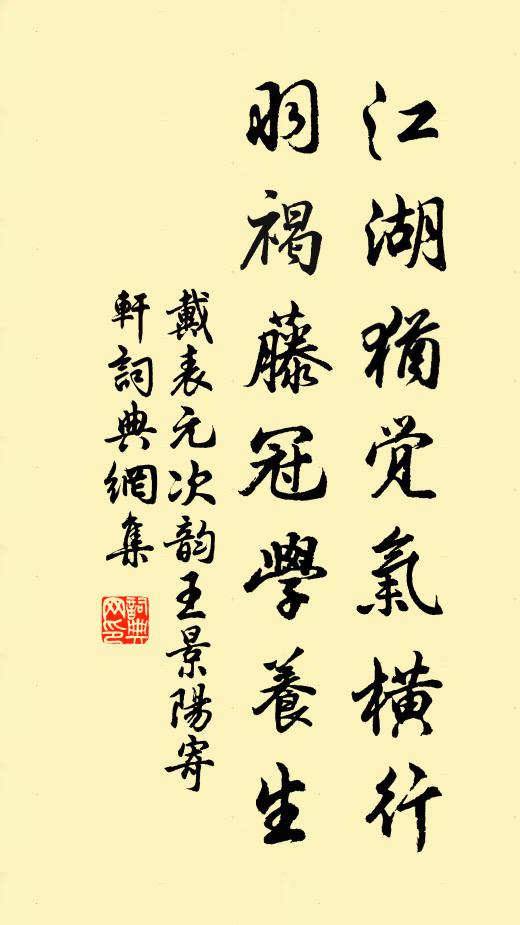 江湖猶覚氣橫行
羽褐藤冠學養生
戴表元次韵王景陽寄
軒詞典網集
詞典网印